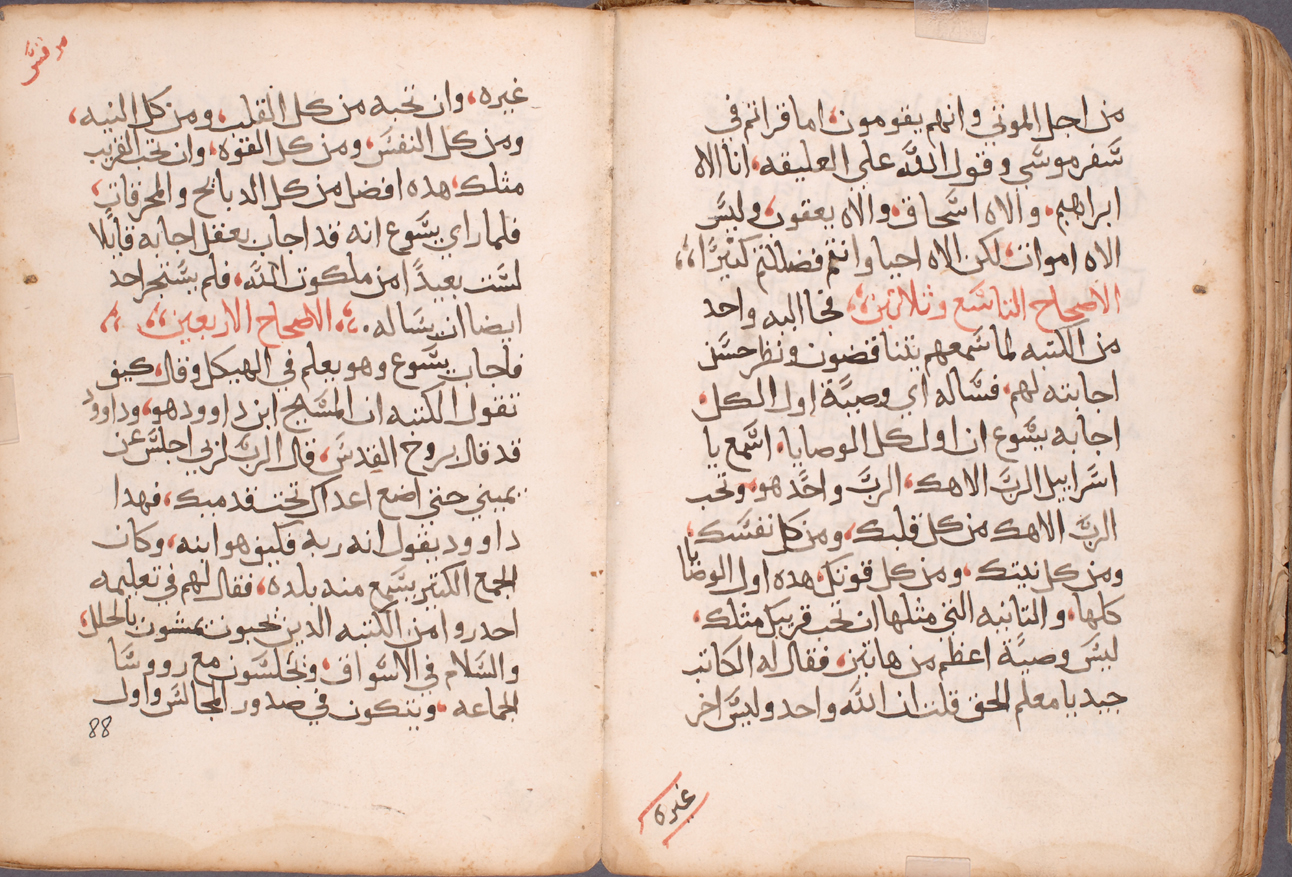 من اجل الموتي وانهم يقومون، اما قراتم في
سفر موسي وقول الله علي العليقه، انا الاه
ابراهيم، والاه اسحاق، والاه يعقوب، وليس
الاه اموات، لكن الاه احيا وانتم فضللتم كثيرًا،،
الاصحاح التاسع وثلاثين،، فجا اليه واحد
من الكتبه لما سمعهم يتناقضون ونظر حسن
اجابته لهم، فساله اي وصيًة اول الكل،
اجابه يسوع ان اول كل الوصايا، اسمع يا
اسراييل الربَ الاهك، الربَ واحدَ هو، وتحب
الربَ الاهك من كل قلبك، ومن كل نفسك،
ومن كل نيتك، ومن كل قوتك، هده اول الوصايا
كلها، والتانيه التي مثلها ان تحب قريبك مثلك،
ليس وصيًة اعظم من هاتين، فقال له الكاتب
جيد يا معلم الحق قلت ان الله واحد وليس اخر
غيره
مرقس
غيره، وان تحبه من كل القلب، ومن كل النيه،
ومن كل النفس، ومن كل القوه، وان تحب القريب
مثلك، هده افضل من كل الدبايح والمحرقات،
فلما راي يسوع انه قد اجاب بعقل اجابه قايلًا
لست بعيدًا من ملكوت الله، فلم يستجر احد
ايضا ان يساله. الاصحاح الاربعين،،
فاجاب يسوع وهو يعلم في الهيكل وقال، كيف
تقول الكتبه ان المسيح ابن داوود هو، وداوود
قد قال بروح القدس، قال الربَ لربي اجلس عن
يميني حتي اضع اعداك تحت قدميك، فهدا
داوود يقول انه ربه فكيف هو ابنه، وكان
الجمع الكتير يسمع منه بلده، فقال لهم في تعليمه
احدروا من الكتبه الدين يحبون يمشون بالحلل،
والسلام في الاسواق، ويجلسون مع رووسا
الجماعه، ويتكون في صدور المجالس واول
88